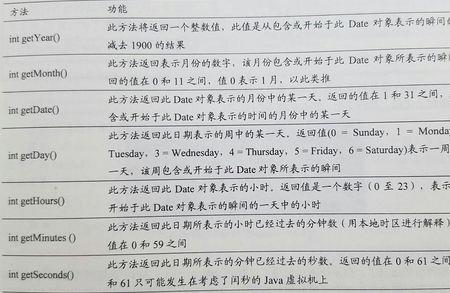 方法 功能
此方法将返回一个整数值，此值是从包含或开始于此 Date 对象表示的瞬间的
int getYear()
减去 1900 的结果
此方法返回表示月份的数字，该月份包含或开始于此 Date 对象所表示的瞬间
int getMonth()
回的值在 0 和 11 之间，值 0 表示 1 月，以此类推
此方法返回此 Date 对象表示的月份中的某一天。返回的值在 1 和 31 之间，
int getDate()
含或开始于此 Date 对象表示的时间的月份中的某一天
此方法返回此日期表示的周中的某一天。返回值(0 = Sunday，1 = Monda
int getDay()
Tuesday，3 = Wednesday，4 = Thursday，5 = Friday，6 = Saturday)表示一周
一天，该周包含或开始于此 Date 对象所表示的瞬间
此方法返回此 Date 对象表示的小时。返回值是一个数字（0 至 23），表示
int getHours()
开始于此 Date 对象表示的瞬间的一天中的小时
此方法返回此日期所表示的小时已经过去的分钟数（用本地时区进行解释）
int getMinutes ()
值在 0 和 59 之间
此方法返回此日期所表示的分钟已经过去的秒数。返回的值在 0 和 61 之间
int getSeconds()
和 61 只可能发生在考虑了闰秒的 Java 虚拟机上